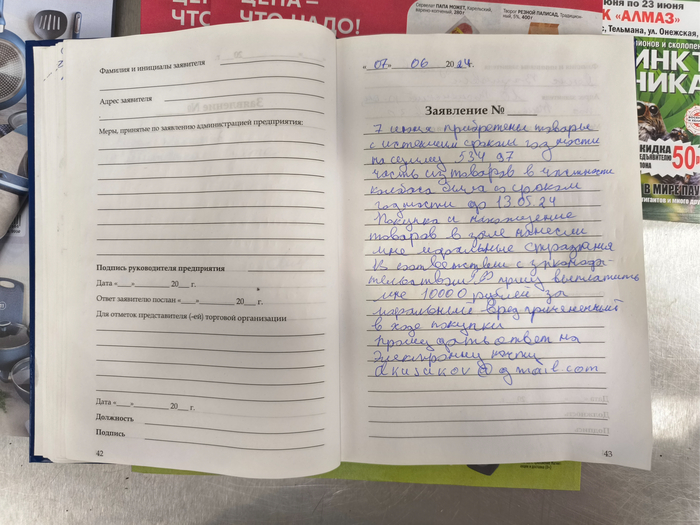 ЦЕНА –
ЧТО НАДО!
Сервелат ПАПА МОЖЕТ, Карельский,
Творог РЕЗНОЙ ПАЛИСАД, Традицион
5%, 400г
июня по 23 июня
К «АЛМАЗ»
с, Тельмана, ул. Онежская,
ИОНОВ И СКОЛОПЕН
ИНКТ
НИКА
СКИДКА
ПРЕДЪЯВИТЕЛЮ
50
В МИРЕ ПАУ
Фамилия и инициалы заявителя
Адрес заявителя
Меры, принятые по заявлению администрацией предприятия:
Подпись руководителя предприятия
Дата «___» ______ 20___ г.
Ответ заявителю послан «___» ______ 20___ г.
Для отметок представителя (-ей) торговой организации
Дата «___» ______ 20___ г.
Должность
Подпись
42
«07» 06 2024
Заявление №
7 июня приобретены товары
с истекшим сроком годности
на сумму 534 97
часть из товаров в частности
колбаса была со сроком
годности до 13.05.24
Покупка и нахождение
товаров в зале нанесли
мне моральные страдания
В соответствии с законода-
тельством РФ прошу выплатить
мне 10000 рублей за
моральный вред причиненный
в ходе покупки
Прошу дать ответ на
электронную почту
akusakov@gmail.com
43